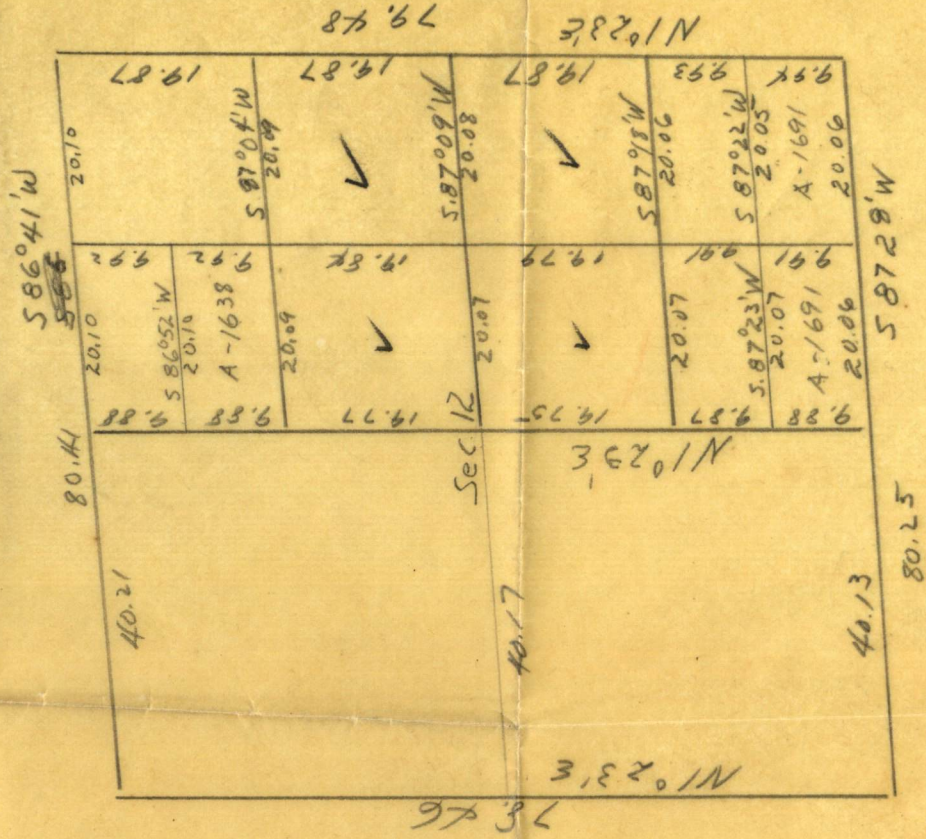 79.48
N1°23'E
19.87
19.87
19.87
9.93
9.94
S86°41'W
20.10
S 87°04'W
20.09
S.87°09'W
20.08
S87°18'W
20.06
S 87°22'W
20.05
A-1691
20.06
S 87 28'W
9.92
9.92
19.84
19.79
9.91
9.91
20.10
S 86°52'W
20.10
A-1638
20.09
20.07
20.07
S.87°23'W
20.07
A-1691
20.06
9.88
9.88
19.77
19.75
9.87
9.88
Sec. 12
N1°23'E
80.41
80.25
40.21
40.17
40.13
N1°23'E
78.46